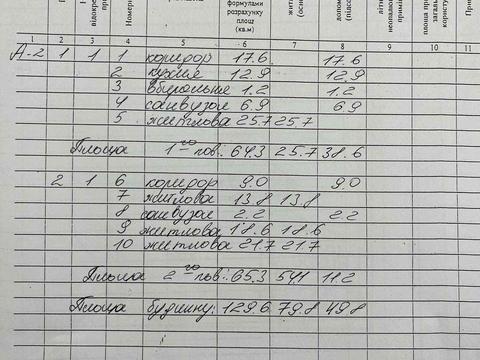 формулами
розрахунку
площ
(кв.м)
1 2 3 4 5 6 7 8 9 10 11
А-2 1 1 1 коридор 17.6 17.6
2 кухня 12.9 12.9
3 вбиральня 1.2 1.2
4 санвузол 6.9 6.9
5 житлова 25.7 25.7
Площа 1го пов.: 64.3 25.7 38.6
2 1 6 коридор 9.0 9.0
7 житлова 13.8 13.8
8 санвузол 2.2 2.2
9 житлова 18.6 18.6
10 житлова 21.7 21.7
Площа 2го пов.: 65.3 54.1 11.2
Площа будинку: 129.6 79.8 49.8